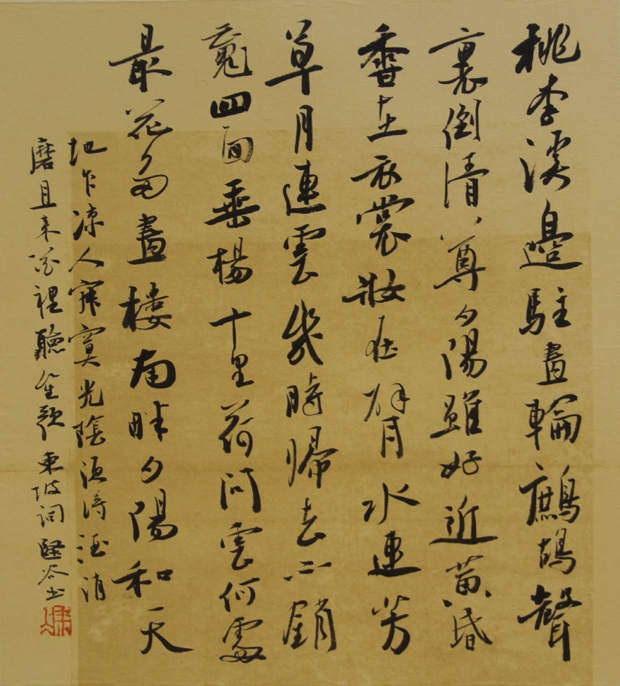 桃李溪邊駐畫輪鷓鴣聲
裏倒清尊夕陽雖好近黃昏
香在衣裳妝在臂水連芳
草月連雲幾時歸去不銷
魂四面垂楊十里荷問雲何處
最花多畫樓南畔夕陽和天
氣乍涼人寂寞光陰須得酒消
磨且來花裡聽笙歌東坡詞